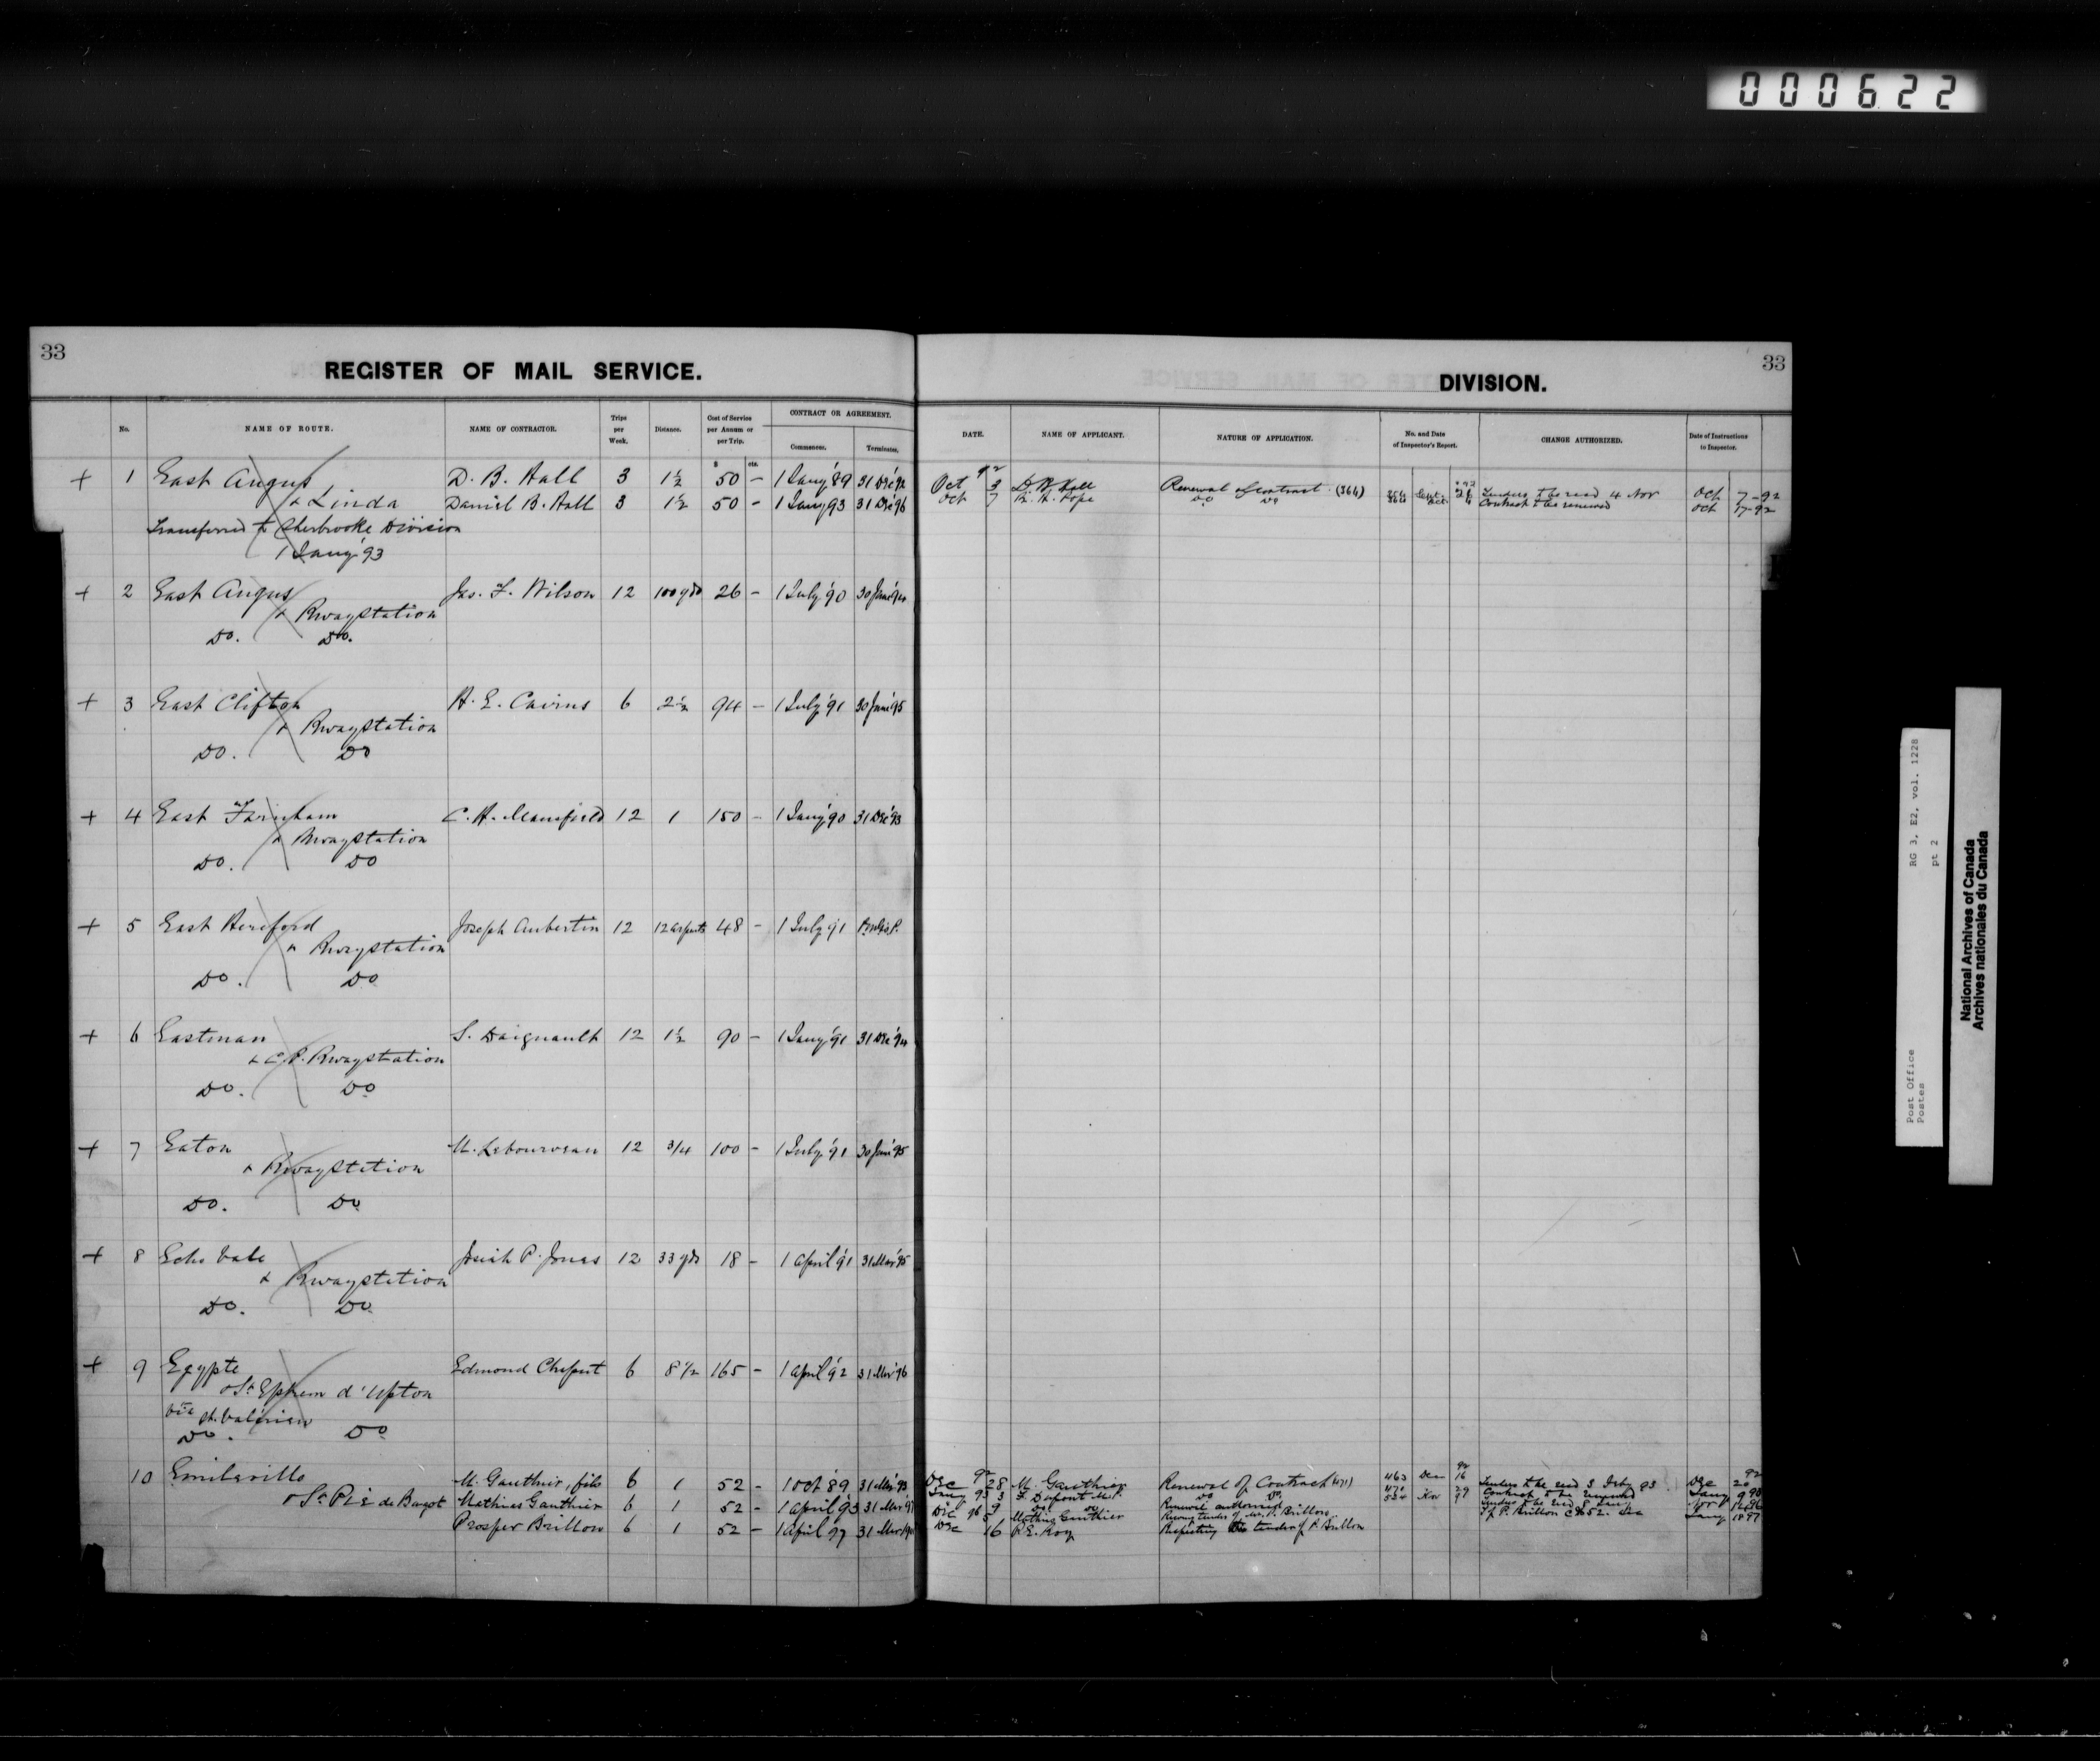 000622
33
REGISTER OF MAIL SERVICE.
No. NAME OF ROUTE. NAME OF CONTRACTOR. Trips per Week. Distance. Cost of Service per Annum or per Trip. CONTRACT OR AGREEMENT. Commences. Terminates.
$ cts.
+ 1 East Angus D. B. Hall 3 1½ 50 - 1 Jany '89 31 Dec '92
& Linda Daniel B. Hall 3 1½ 50 - 1 Jany 93 31 Dec '96
Transferred to Sherbrooke Division
1 Jany '93
+ 2 East Angus Jas. F. Wilson 12 100 yds 26 - 1 July '90 30 June '94
& Rwaystation
Do. Do.
+ 3 East Clifton H. E. Cairns 6 2½ 94 - 1 July '91 30 June '95
& Rwaystation
Do. Do
+ 4 East Farnham C. H. Mansfield 12 1 150 - 1 Jany '90 31 Dec '93
& Rwaystation
Do. Do
+ 5 East Hereford Joseph Aubertin 12 12 arpents 48 - 1 July '91
& Rwaystation
Do. Do
+ 6 Eastman S. Daignault 12 1½ 90 - 1 Jany '91 31 Dec '94
& C.P. Rwaystation
Do. Do
+ 7 Eaton M. Lebourveau 12 3/4 100 - 1 July '91 30 June '95
& Rwaystation
Do. Do
+ 8 Echo Vale Josiah P. Jones 12 33 yds 18 - 1 April '91 31 Mar '95
& Rwaystation
Do. Do
+ 9 Egypte Edmond Chaput 6 8 1/2 165 - 1 April '92 31 Mar '96
& St Ephrem d'Upton
via St. Valérien
Do. Do
10 Emileville M. Gauthier, fils 6 1 52 - 1 Oct '89 31 Mar '93
& St Pie de Bagot Mathias Gauthier 6 1 52 - 1 April '93 31 Mar '97
Prosper Brillon 6 1 52 - 1 April 97 31 Mar
33
DIVISION.
DATE. NAME OF APPLICANT. NATURE OF APPLICATION. No. and Date of Inspector's Report. CHANGE AUTHORIZED. Date of Instructions to Inspector.
Oct 92 3 D. B. Hall Renewal of Contract (364) 354 Sept. 26 Tenders to be recd 4 Nov Oct 7-92
Oct 7 R. H. Pope Do Do 364 Oct. 4 Contract to be renewed Oct 17-92
Dec 92 28 M. Gauthier Renewal of Contract (471) 463 Dec 92 16 Tenders to be recd 3 Feby 93 Dec 92 20
Jany 93 3 F. Dupont M.P. Do Do 471 29 Contract to be renewed Jany 9 93
Renewal authorised 524 Nov 9 Tenders to be recd 8 Jany Nov
Dec 96 5 Mathias Gauthier Receiving tender of Mr. P. Brillon of P. Brillon @ $52. Jany 18 97
Dec 16 P. E. Roy Respecting the tender of P. Brillon
RG 3, E2, vol. 1228
pt 2
Post Office
Postes
National Archives of Canada
Archives nationales du Canada